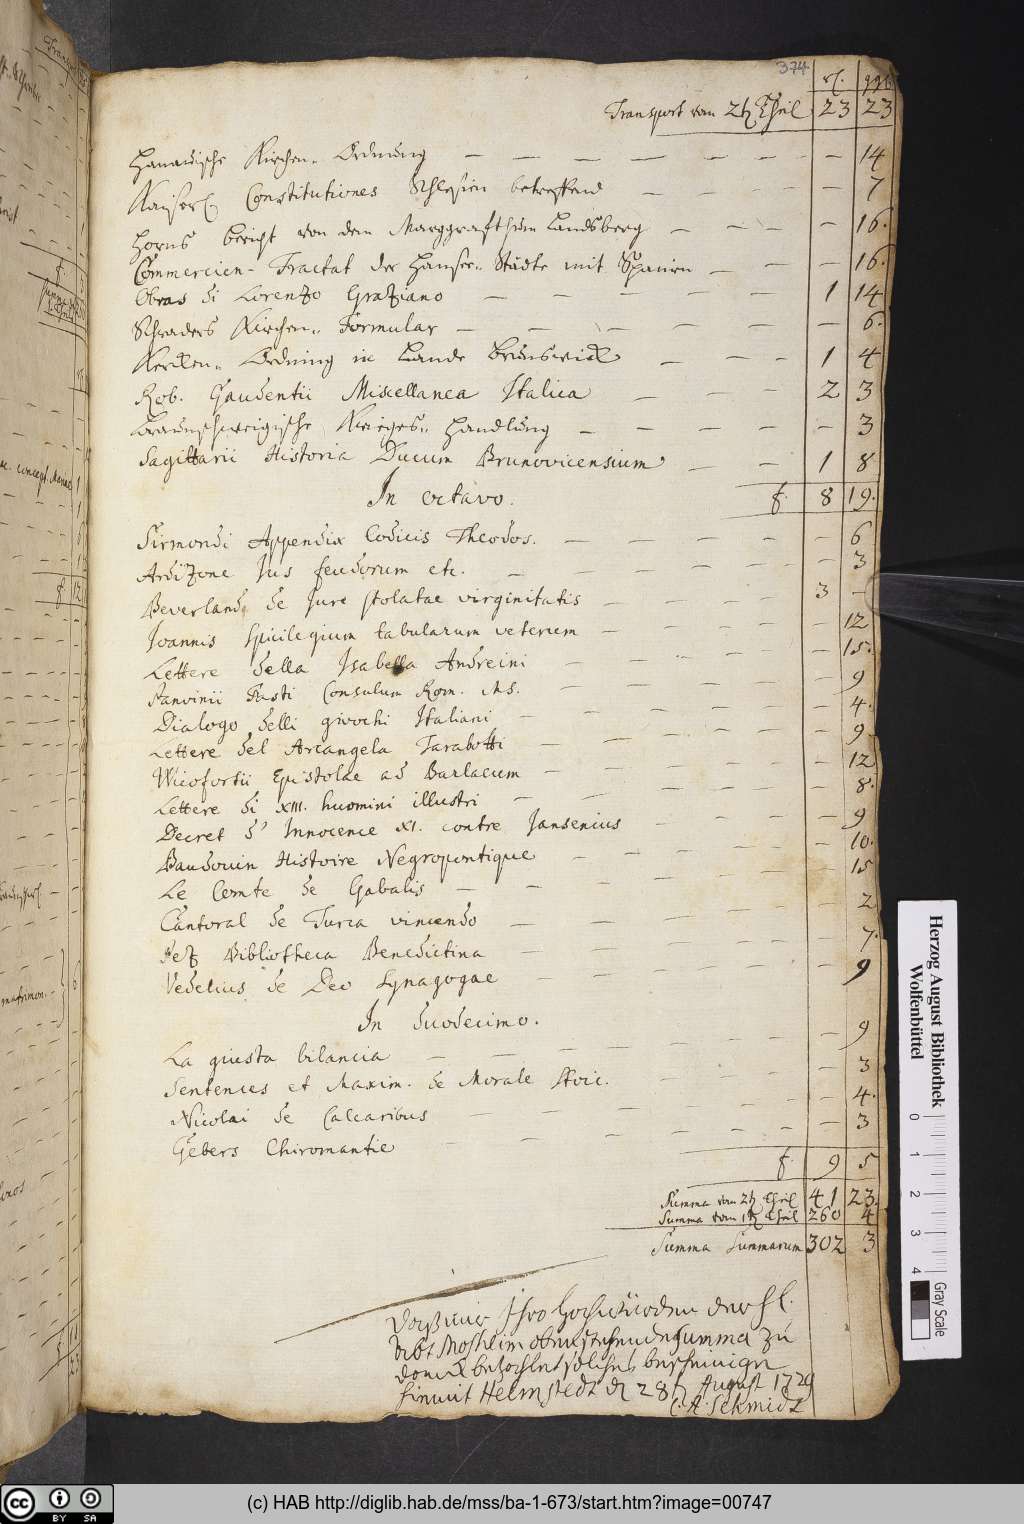 374
rl. ggl
Transport vom 2t Theil 23 23
Hanauische Kirchen-Ordnung 14
Kaiserl. Constitutiones Schlesien betreffend 7
Horns Bericht von dem Marggrafthum Landsberg 16.
Commercien-Tractat der Hansee-Städte mit Spanien 16.
Obras di Lorenzo Graziano 1 14
Schraders Kirchen-Formular 6.
Kercken-Ordning im Lande Brunswick 1 4
Rob. Gaudentii Miscellanea Italica 2 3
Braunschweigische Krieges-Handlung 3
Sagittarii Historia Ducum Brunovicensium 1 8
In octavo. f. 8 19.
Sirmondi Appendix Codicis Theodos. 6
Ardizone Jus feudorum etc. 3
Beverland de Jure stolatae virginitatis 3 —
Joannis Spicilegium tabularum veterum 12
Lettere della Isabella Andreini 15.
Panvinii Fasti Consulum Rom. Ms. 9
Dialogo delli giuochi Italiani 4.
Lettere del Arcangela Tarabotti 9
Wicofortii Epistolae ad Barlaeum 12
Lettere di XIII. huomini illustri 8.
Decret d' Innocence XI. contre Jansenius 9
Baudouin Histoire Negropontique 10.
Le Comte de Gabalis 15
Cantoral de Turca vincendo 2
Pez Bibliotheca Benedictina 7.
Vedelius de Deo Synagogae 9
In duodecimo.
La giusta bilancia 9
Sentences et Maxim. de Morale Stoic. 3
Nicolai de Calcaribus 4.
Gebers Chiromantie 3
f. 9 5
Summa vom 2t Theil 41 23.
Summa vom 1t Theil 260 4
Summa Summarum 302 3
Daß mir Ihro Hochwürden der H.
Abt Moßheim obenstehende Summa zu
danck bezahlet solches bescheinige
hiemit Helmstedt d 28t August 1729
C. A. Schmidt
Herzog August Bibliothek
Wolfenbüttel
0 1 2 3 4
Gray Scale
cc BY SA
(c) HAB http://diglib.hab.de/mss/ba-1-673/start.htm?image=00747